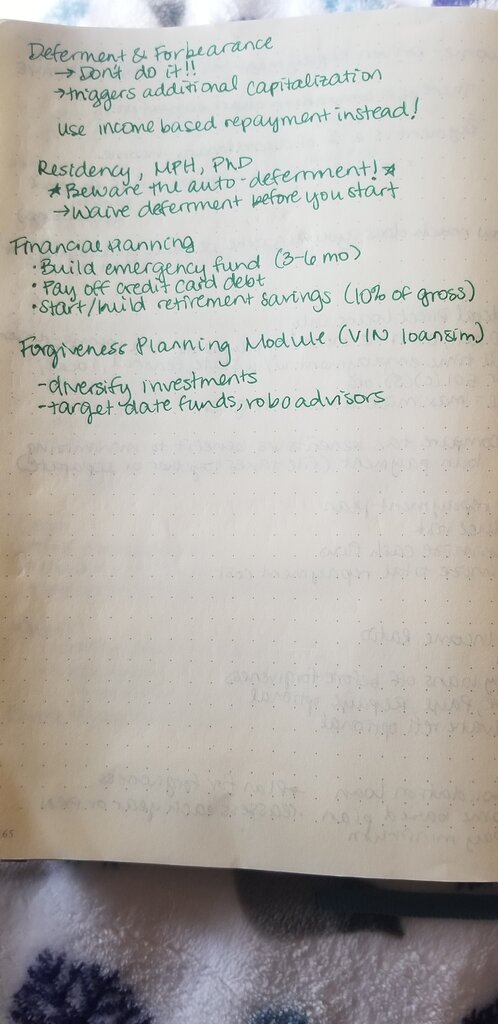 Deferment & Forbearance
→ Don't do it!!
→ triggers additional capitalization
use income based repayment instead!
Residency, MPH, PhD
★Beware the auto-deferment!★
→ Waive deferment before you start
Financial Planning
• Build emergency fund (3-6 mo)
• Pay off credit card debt
• Start/build retirement savings (10% of gross)
Forgiveness Planning Module (VIN loansim)
- diversify investments
- target date funds, robo advisors
65